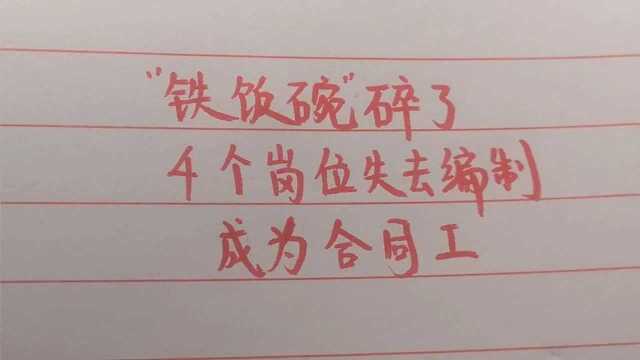 “铁饭碗”碎了
4个岗位失去编制
成为合同工